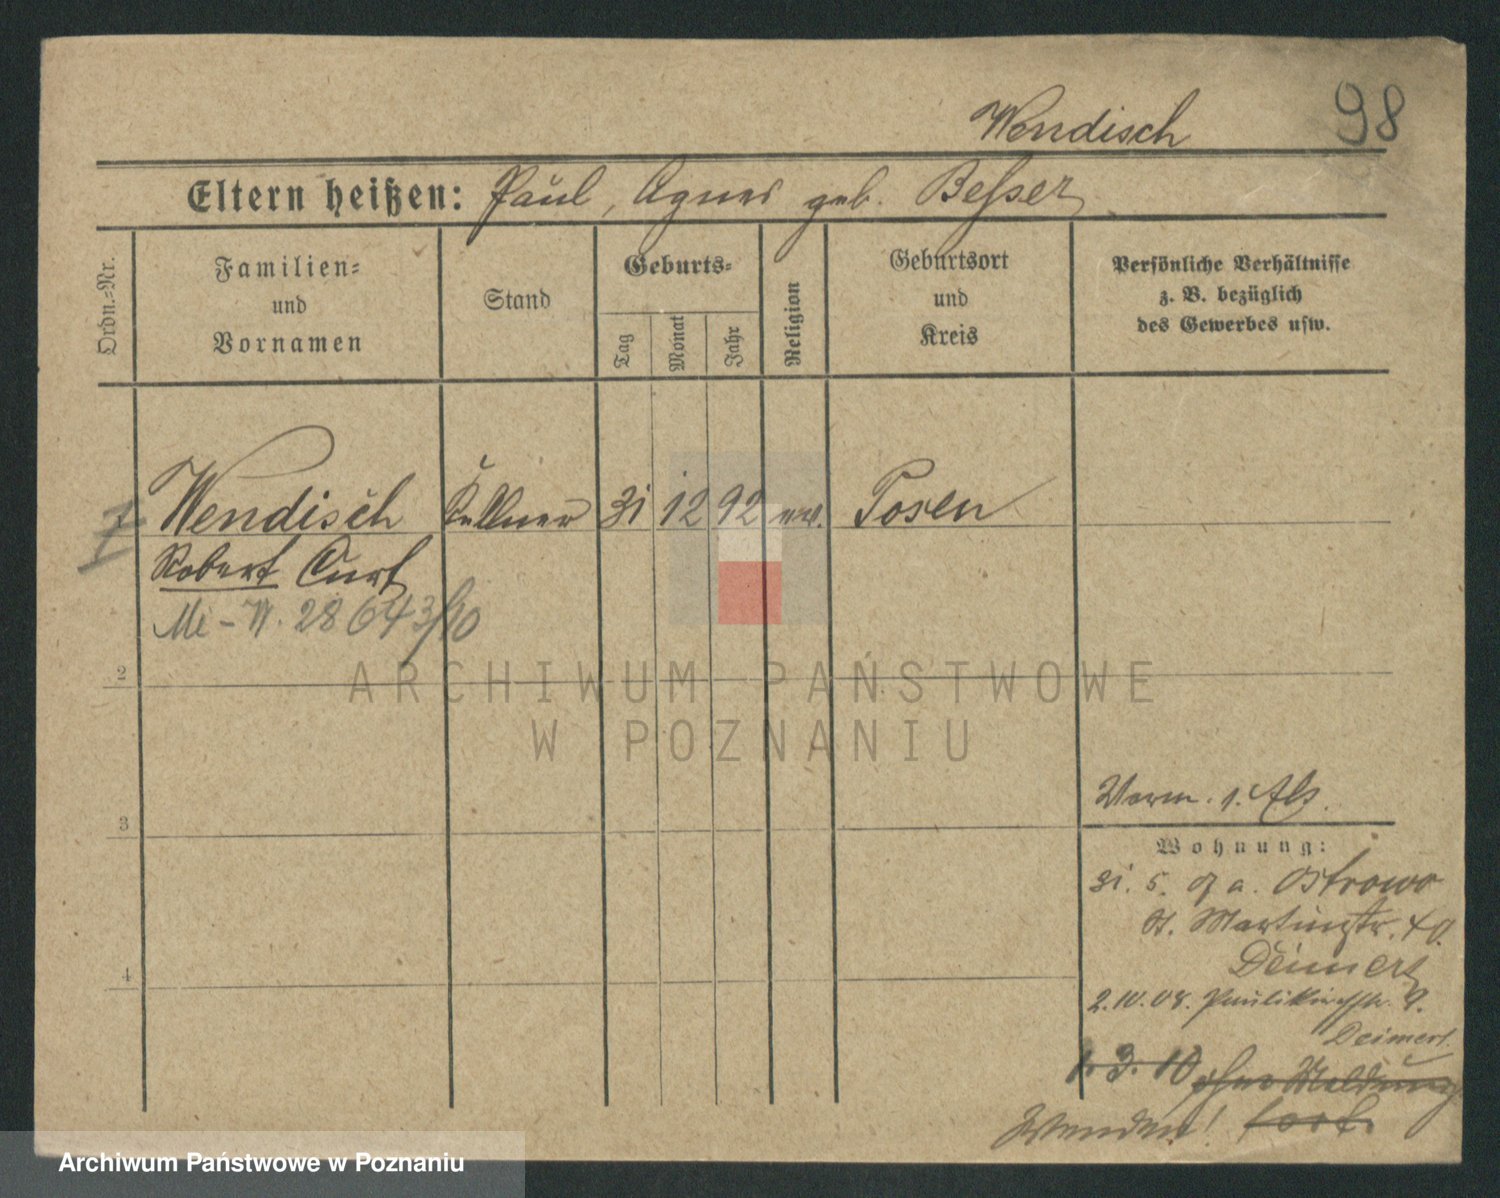 98
Wendisch
Eltern heißen: Paul, Agnes geb. Besser
Ordn.=Nr.
Familien=
und
Vornamen
Stand
Geburts=
Tag
Monat
Jahr
Religion
Geburtsort
und
Kreis
Persönliche Verhältnisse
z. B. bezüglich
des Gewerbes usw.
1 Wendisch Kellner 31 12 92 ev. Posen
Robert Curt
28643/10
2
3
4
Vorm.
Wohnung:
31. 5. a. Ostrowo
St. Martinstr. 40.
Deimert
2.10.08. Paulikirchstr. 9.
Deimert.
1. 3. 10 ohne Meldung
Wenden! fort.
ARCHIWUM PAŃSTWOWE
W POZNANIU
Archiwum Państwowe w Poznaniu